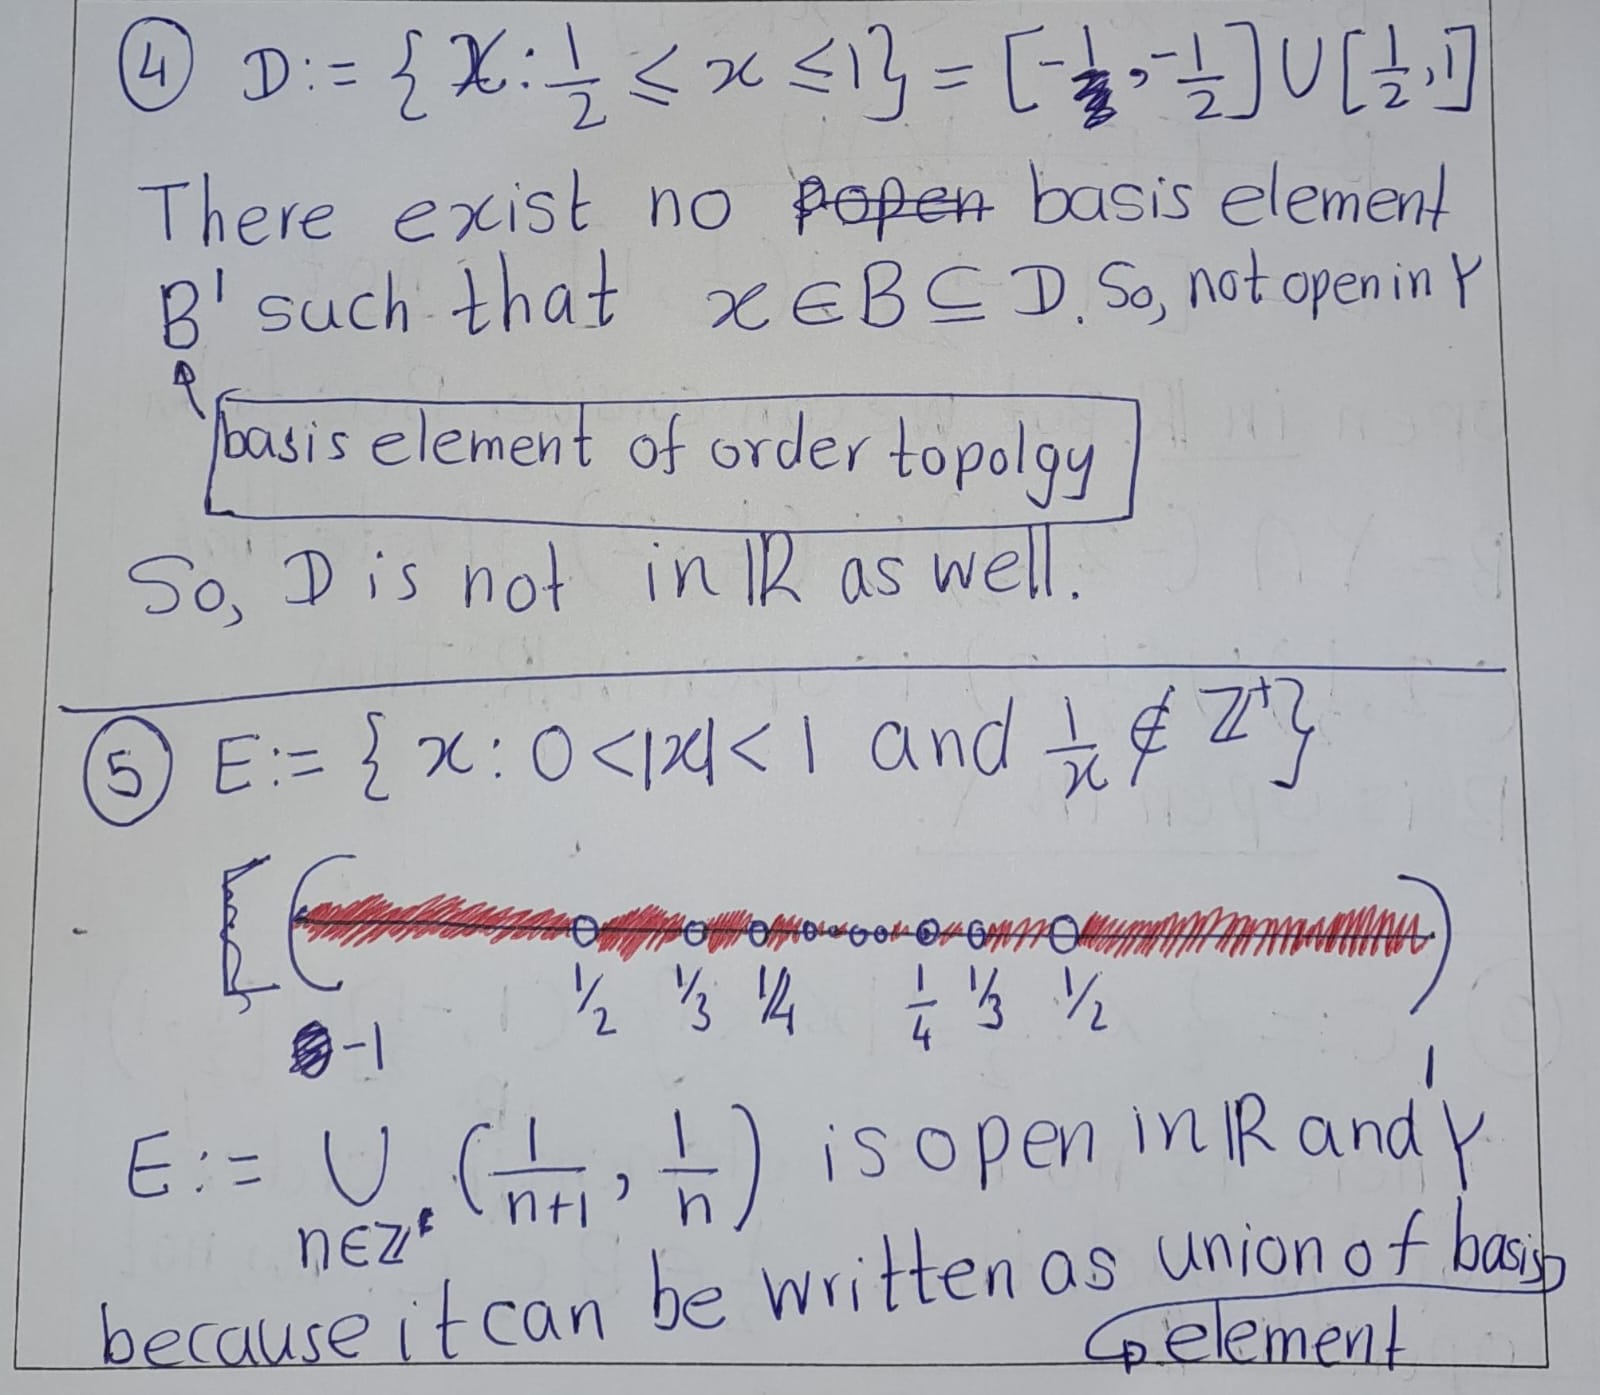 ④ D:= {x: 1/2 ≤ x ≤ 1} = [-1, -1/2] ∪ [1/2, 1]
There exist no popen basis element
B' such that x ∈ B ⊆ D. So, not open in Y
basis element of order topolgy
So, D is not in ℝ as well.
⑤ E:= {x: 0<|x|<1 and 1/x ∉ ℤ⁺}
1/2 1/3 1/4 1/4 1/3 1/2
-1 1
E:= ∪ (1/n+1, 1/n) is open in ℝ and Y
n∈ℤ
because it can be written as union of basis
element